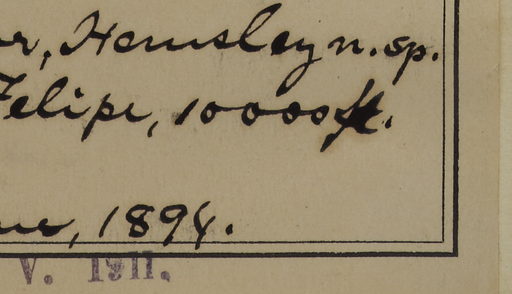 r, Hemsley n. sp.
Felipe, 10000 ft.
ne, 1894.
V. 1911.